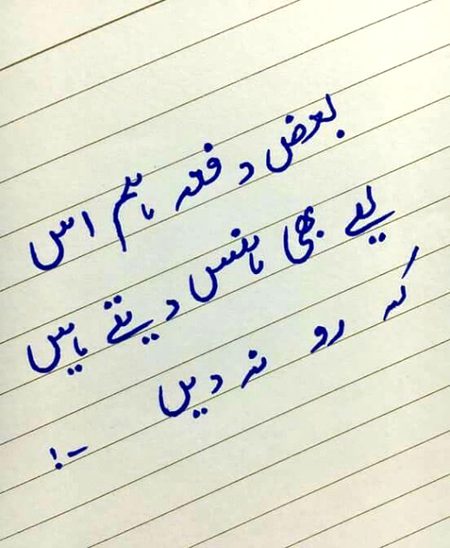 بعض دفعہ ہم اس
لیے بھی ہنس دیتے ہیں
کہ رو نہ دیں
۔!